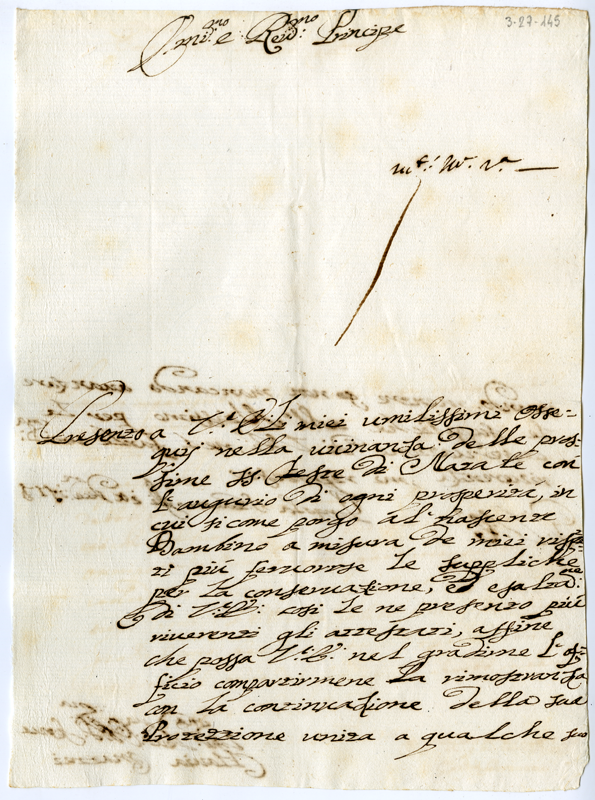 3-27-145
Emi.mo e Reu.mo Principe
Presento a V.E. li miei umilissimi osse=
quij nella vicinanza delle pros=
sime SS. Feste di Natale con
l'augurio di ogni prosperità, in
cui sicome porgo al nascente
Bambino a misura de miei
più feruorose le suppliche
per la conseruazione, ed esaltaz.ne
di V.E. così le ne presento più
riuerenti gli attestati, affine
che possa V.E. nel gradirne l'of=
ficio compartirmene la rimostranza
con la continuazione della sua
Protezzione unita a qualche suo